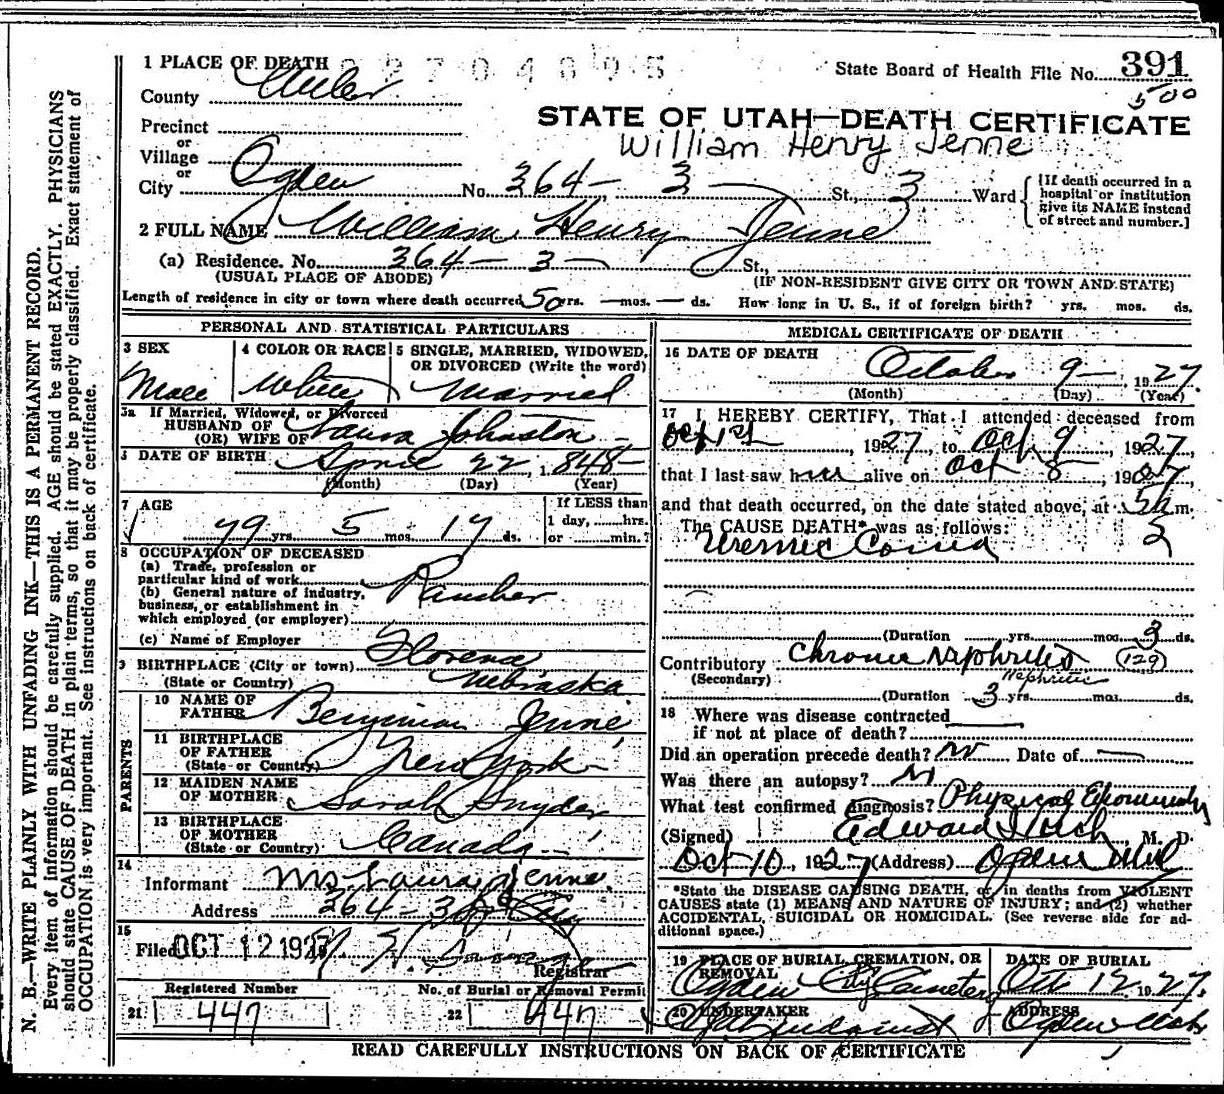 1 PLACE OF DEATH
2 7 0 4 6 9 5
State Board of Health File No. 391
500
County Weber
STATE OF UTAH—DEATH CERTIFICATE
Precinct
or
William Henry Jenne
Village
or
City Ogden No. 364- 3- St., 3 Ward
[If death occurred in a
hospital or institution
give its NAME instead
of street and number.]
2 FULL NAME William Henry Jenne
(a) Residence. No. 364- 3- St.,
(USUAL PLACE OF ABODE)
(IF NON-RESIDENT GIVE CITY OR TOWN AND STATE)
Length of residence in city or town where death occurred 50 yrs. — mos. — ds. How long in U. S., if of foreign birth? yrs. mos. ds.
PERSONAL AND STATISTICAL PARTICULARS
3 SEX
Male
4 COLOR OR RACE
White
5 SINGLE, MARRIED, WIDOWED,
OR DIVORCED (Write the word)
Married
5a If Married, Widowed, or Divorced
HUSBAND OF
(OR) WIFE OF Laura Johnston
6 DATE OF BIRTH April 22, 1848
(Month) (Day) (Year)
7 AGE
79 yrs. 5 mos. 17 ds.
If LESS than
1 day, ......hrs.
or ......min.?
8 OCCUPATION OF DECEASED
(a) Trade, profession or
particular kind of work
(b) General nature of industry,
business, or establishment in
which employed (or employer)
Rancher
(c) Name of Employer
9 BIRTHPLACE (City or town) Florence
(State or Country) Nebraska
PARENTS
10 NAME OF
FATHER Benjiman Jenne
11 BIRTHPLACE
OF FATHER
(State or Country) New York
12 MAIDEN NAME
OF MOTHER Sarah Snyder
13 BIRTHPLACE
OF MOTHER
(State or Country) Canada
14
Informant Mrs Laura Jenne
Address 364-3
15
Filed OCT 12 1927
Registrar
Registered Number
21 447
No. of Burial or Removal Permit
22 447
MEDICAL CERTIFICATE OF DEATH
16 DATE OF DEATH
October 9- 1927
(Month) (Day) (Year)
17 I HEREBY CERTIFY, That I attended deceased from
Oct 1st, 1927, to Oct 9, 1927,
that I last saw him alive on Oct 8, 1927,
and that death occurred, on the date stated above, at 5a m.
The CAUSE DEATH* was as follows:
Uremic Coma 2
(Duration yrs. mos. 3 ds.
Contributory Chronic Nephritis (129)
(Secondary) Nephritis
(Duration 3 yrs. mos. ds.
18 Where was disease contracted
if not at place of death?
Did an operation precede death? no Date of —
Was there an autopsy? no
What test confirmed diagnosis? Physical
(Signed) Edward M. D.
Oct 10, 1927 (Address) Ogden Utah
*State the DISEASE CAUSING DEATH, or, in deaths from VIOLENT
CAUSES state (1) MEANS AND NATURE OF INJURY; and (2) whether
ACCIDENTAL, SUICIDAL OR HOMICIDAL. (See reverse side for ad-
ditional space.)
19 PLACE OF BURIAL, CREMATION, OR
REMOVAL
Ogden City Cemetery
DATE OF BURIAL
Oct 12 1927.
20 UNDERTAKER
ADDRESS
Ogden Utah
READ CAREFULLY INSTRUCTIONS ON BACK OF CERTIFICATE
N. B.—WRITE PLAINLY WITH UNFADING INK—THIS IS A PERMANENT RECORD.
Every item of information should be carefully supplied. AGE should be stated EXACTLY. PHYSICIANS
should state CAUSE OF DEATH in plain terms, so that it may be properly classified. Exact statement of
OCCUPATION is very important. See instructions on back of certificate.